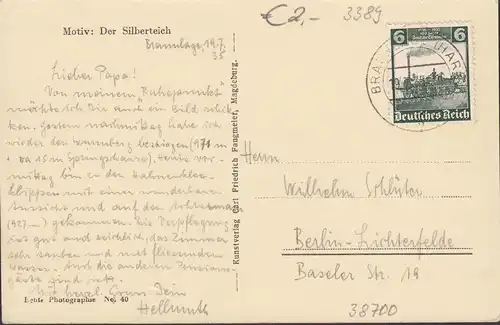 €2,-
3389
Motiv: Der Silberteich
Braunlage, 19.7.
35
Lieber Papa!
Von meinem "Ruhepunkt"
möchte ich Dir auch ein Bild schik-
ken. Gestern nachmittag habe ich
wieder den Wurmberg bestiegen (971 m
+ ca 15 m Sprungschanze), heute vor-
mittag bin zu den Hahnenklee-
klippen mit einer wunderbaren
Aussicht und auf den
(927 gekommen. Die Verpflegung
ist gut und reichlich, das Zimmer
sehr sauber und mit fließendem
Wasser. Auch die anderen Pensions-
gäste sind nett.
Mit herzl. Gruss Dein
Hellmuth
Echte Photographie No. 40
Kunstverlag Carl Friedrich Fangmeier, Magdeburg.
6 6
Deutsches Reich
BRAUNLAGE (HARZ
Herrn
Wilhelm Schlüter
Berlin-Lichterfelde
Baseler Str. 19
38700